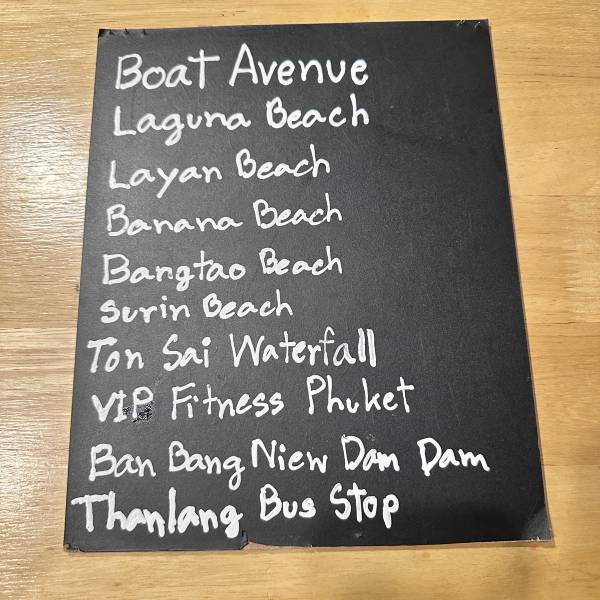 Boat Avenue
Laguna Beach
Layan Beach
Banana Beach
Bangtao Beach
Surin Beach
Ton Sai Waterfall
VIP Fitness Phuket
Ban Bang Niew Dam Dam
Thanlang Bus Stop